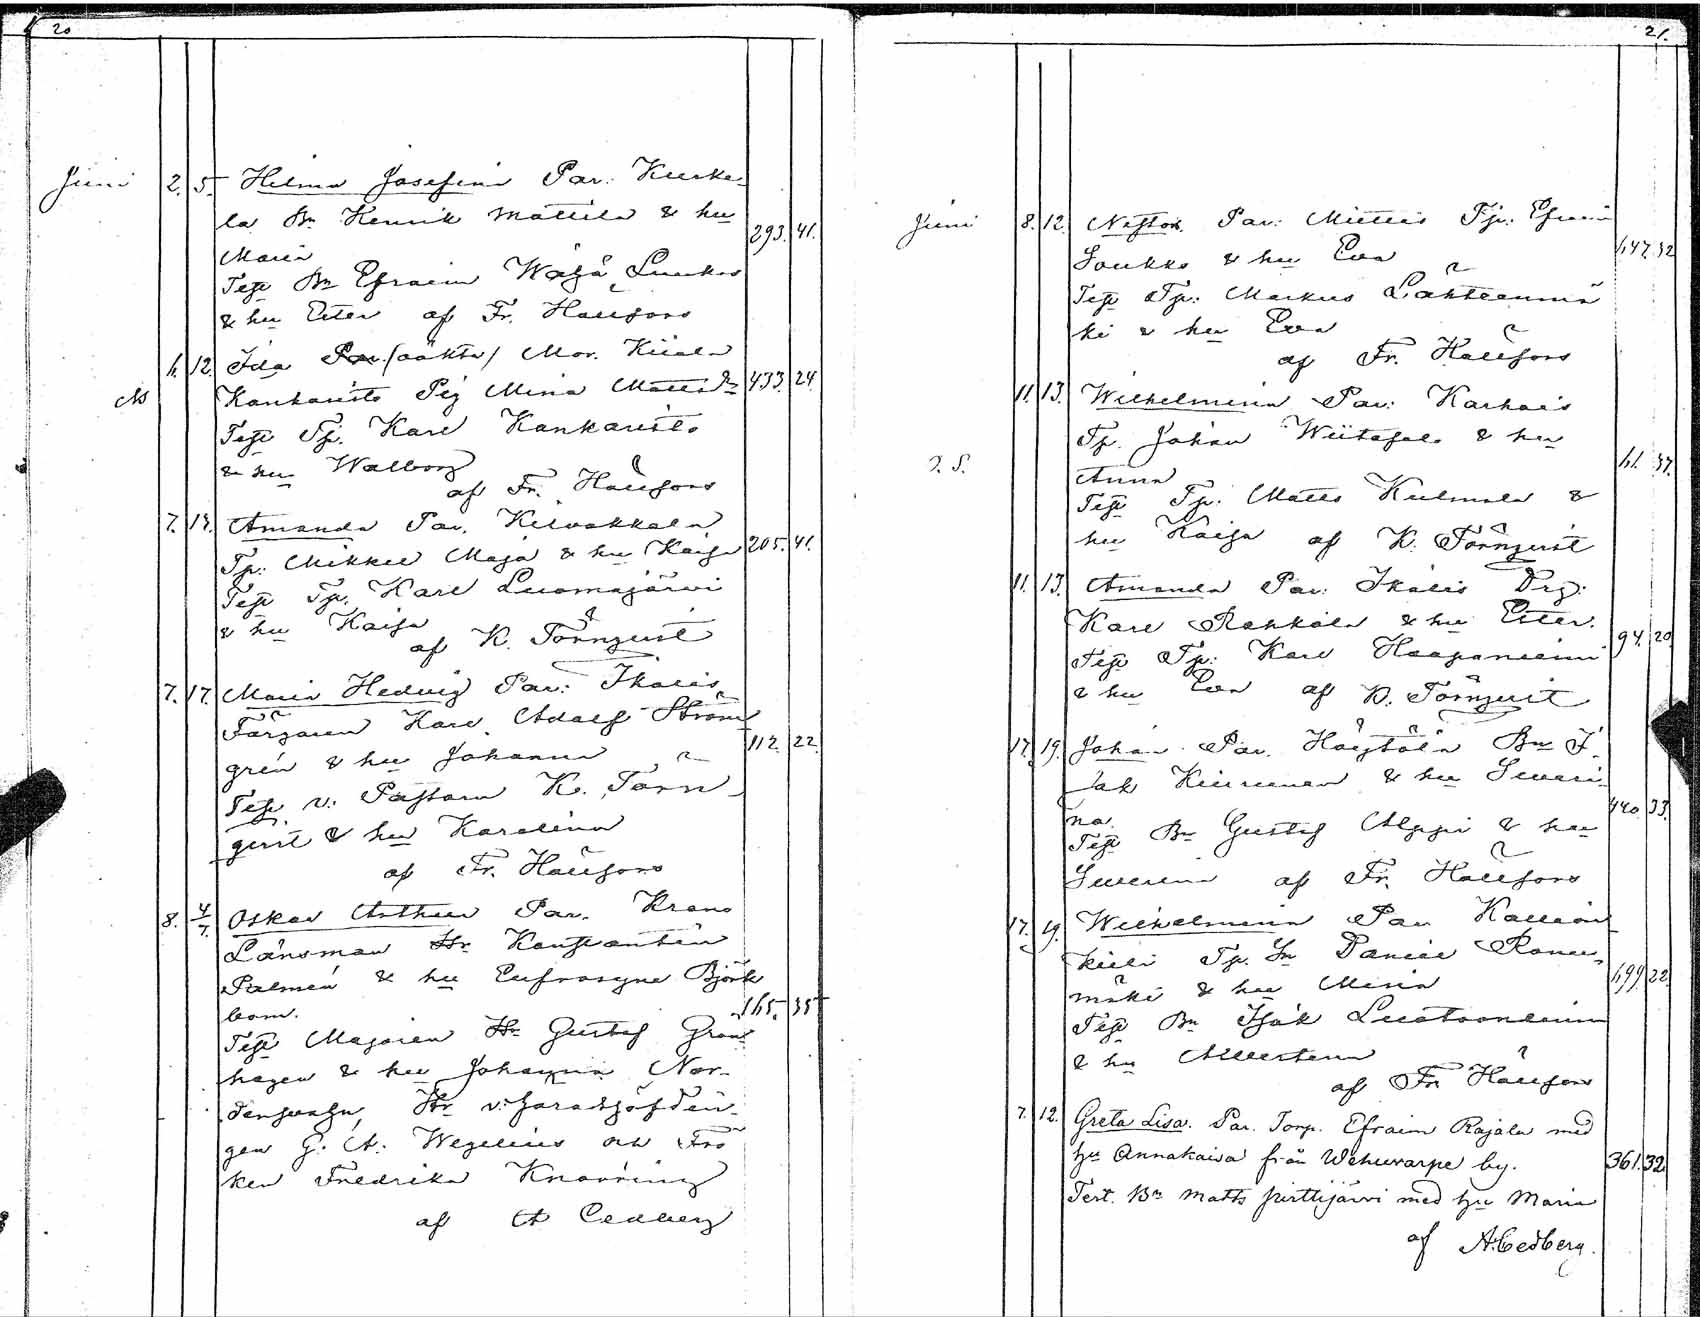 20
Juni 2. 5. Helma Josefina Par: Kurke-
la Bn Henrik Mattila & hu 293. 41.
Maria
Test Bn Efraim Wäjä Luukas
& hu Ester af Fr. Hällfors
4. 12. Ida Par. (oäkta) Mor. Kiiala
Kankaristo Pig Mina Mattsdr 433. 24
Test Tp. Karl Kankaristo
& hu Walborg
af Fr. Hällfors
7. 14. Amanda Par. Kilvakkala
Tp: Mikkel Maja & hu Kaisa 205. 41.
Test Tp. Karl Luomajärvi
& hu Kaisa
af K. Törnqvist
7. 17. Maria Hedvig Par: Ikalis
Färgaren Karl Adolf Ström
grén & hu Johanna 112. 22.
Test v. Pastorn K. Törn
qvist & hu Karolina
af Fr. Hällfors
8. 4/7. Oskar Arthur Par. Krono
Länsman Hr Konstantin
Palmén & hu Eufrosyne Björk
bom. 165. 35
Test Majoren Hr Gustaf Gron
hagen & hu Johanna Nor-
densvahn, Hr v. Häradshöfdin-
gen G. A. Wegelius och Frö
ken Fredrika Knorring
af A Cedberg
21.
Juni 8. 12. Nestor. Par: Miettis Tp: Efraim
Soukko & hu Eva 147. 32
Test Tp: Markus Lähteenmä
ki & hu Eva
af Fr. Hällfors
11. 13. Wilhelmina Par: Karhois
Tp. Johan Wiitasalo & hu
Anna 41. 37.
Test Tp: Matts Kulmala &
hu Kaisa af K. Törnqvist
11. 13. Amanda Par: Ikalis Drg:
Karl Rahkola & hu Ester. 94. 20
Test Tp: Karl Haapaniemi
& hu Eva af K. Törnqvist
17. 19. Johan Par. Höytölä Bn I-
sak Kiuruman & hu Severi-
na. 440. 33.
Test Bn Gustaf Alppi & hu
Severina af Fr. Hällfors
17. 19. Wilhelmina Par Kallion
kieli Tp. Sn Daniel Romu-
mäki & hu Maria 499. 22
Test Bn Isak Luotoniemi
& hu Albertina
af Fr Hällfors
7. 12. Greta Lisa. Par. Torp. Efraim Rajala med
hu Annakaisa från Wehuvarpe by. 361. 32.
Test. Bn Matts Pirttijärvi med hu Maria
af A. Cedberg.